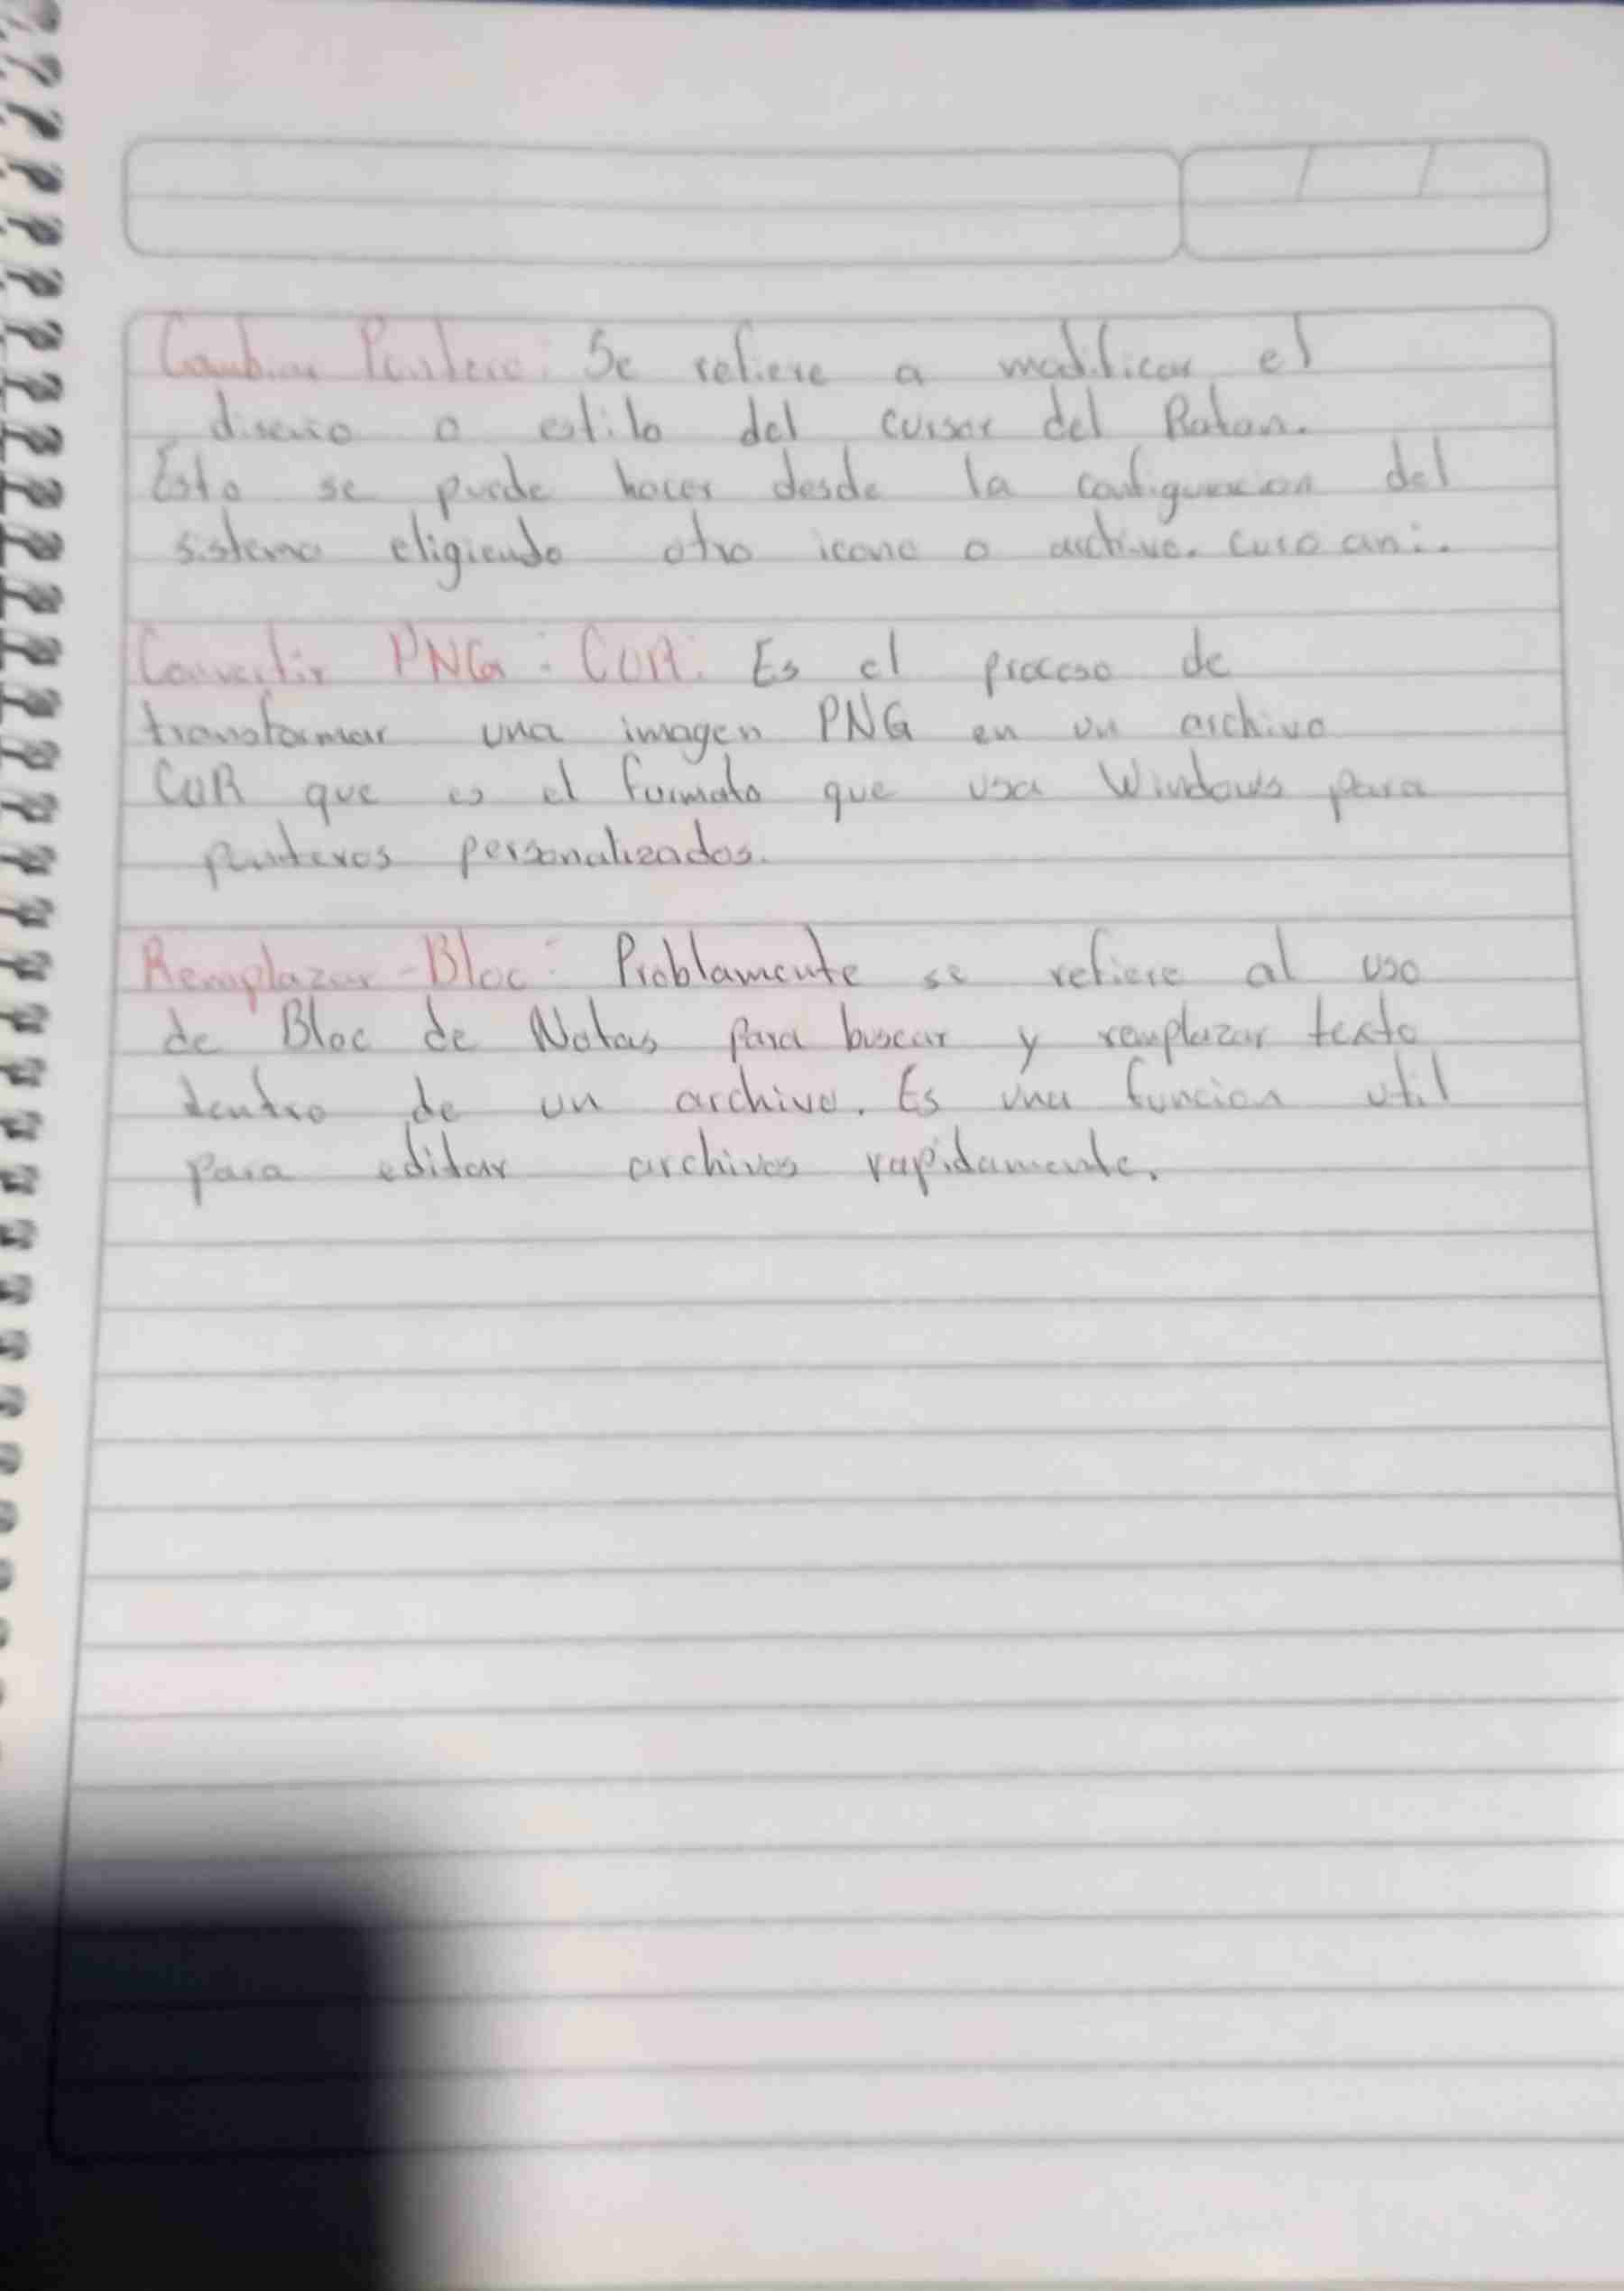 Cambiar Puntero: Se refiere a modificar el
diseño o estilo del cursor del Raton.
Esto se puede hacer desde la configuracion del
sistema eligiendo otro icono o archivo. curo ani.
Convertir PNG - CUR: Es el proceso de
transformar una imagen PNG en un archivo
CUR que es el formato que usa Windows para
punteros personalizados.
Remplazar - Bloc: Problamente se refiere al uso
de Bloc de Notas para buscar y remplazar texto
dentro de un archivo. Es una funcion util
para editar archivos rapidamente.